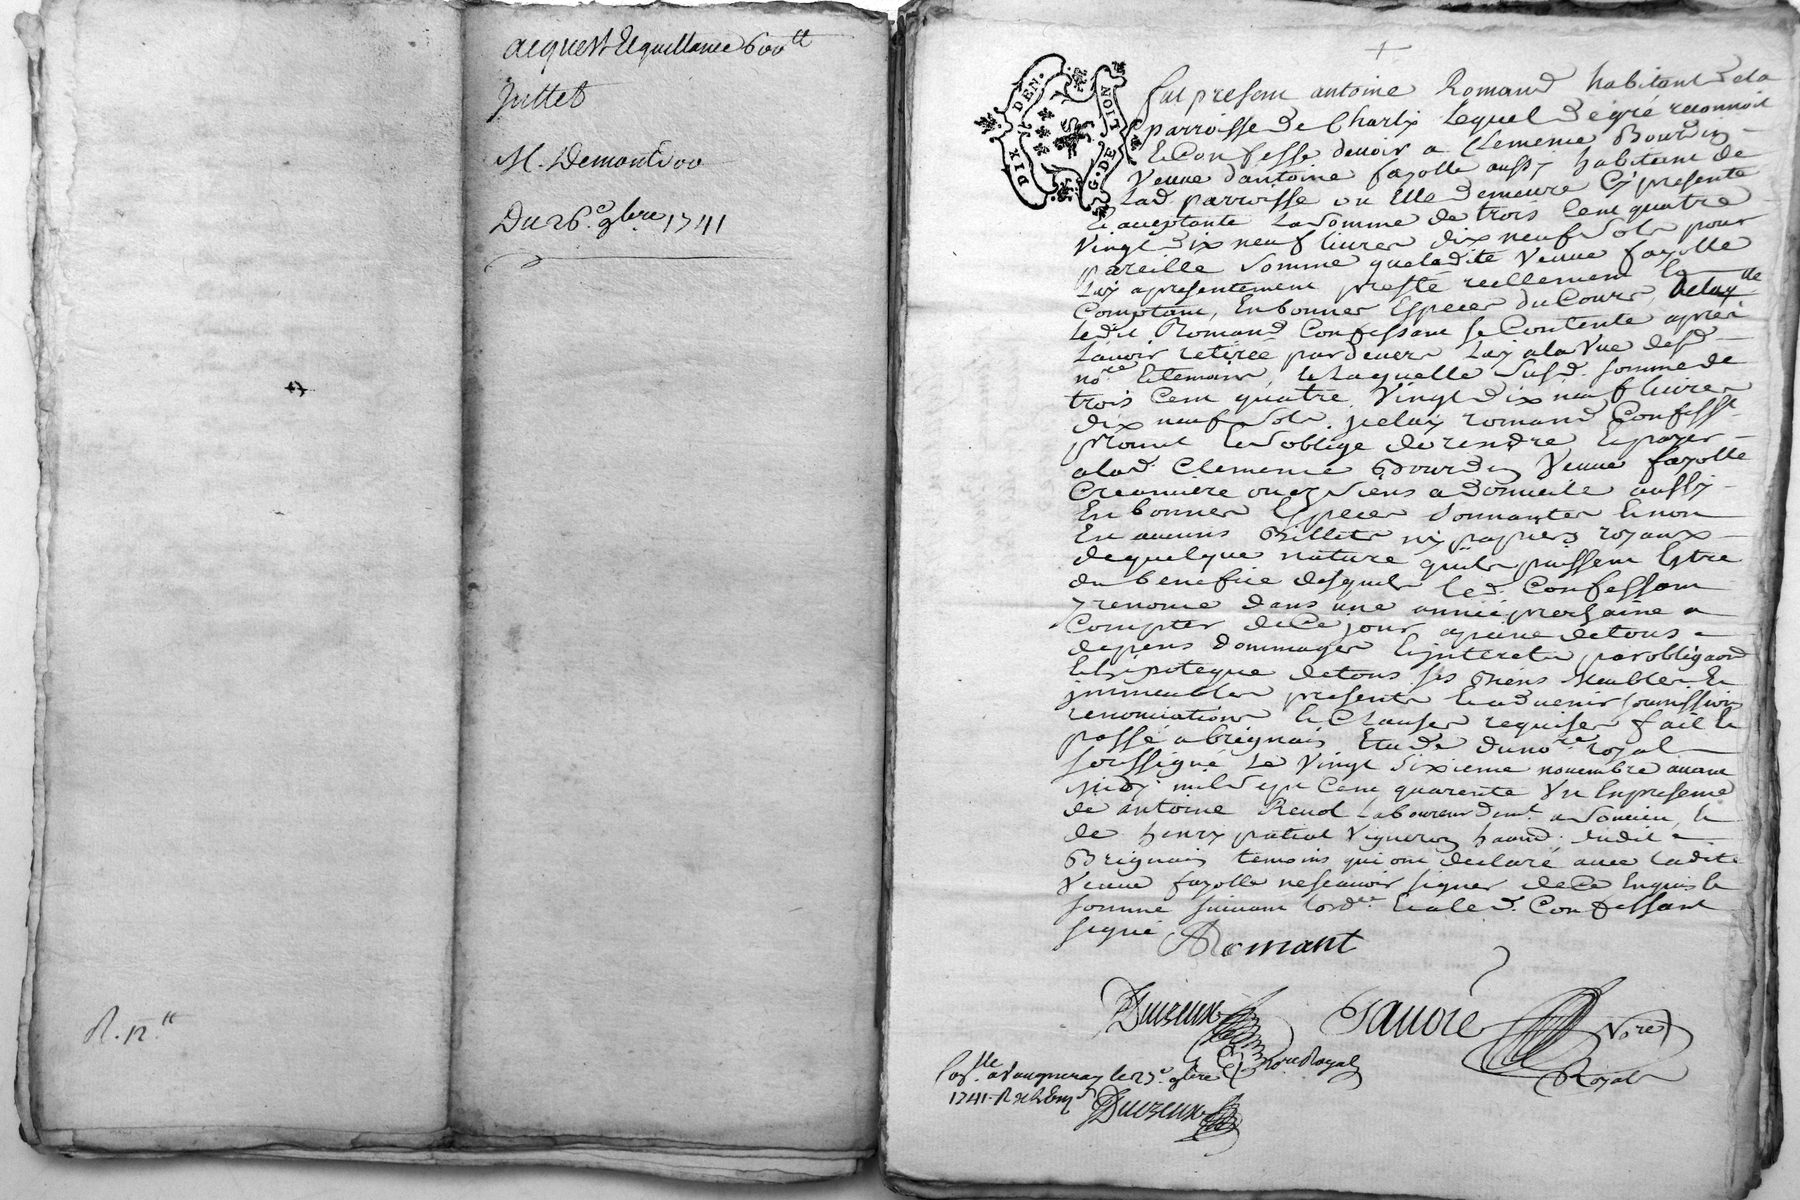 acquest et quittance 600ᵗᵗ
Juttet
M. Demont
Du 26ᵉ 9bre 1741
R. 12ᵗᵗ
DIX DEN.
G. DE LION
fut present antoine Romand habitant de la
parroisse de Charly lequel de gré reconnoit
et Confesse devoir a Clemence Bourdin
veuve d'antoine fayolle aussy habitante de
lad parroisse ou elle demeure Cy presente
et acceptante la somme de trois Cent quatre
vingt dix neuf livres dix neuf sols pour
pareille somme que ladite veuve fayolle
luy a presentement presté réellement
Comptant, En bonnes Especes du Cours,
ledit Romand Confessant se Contente après
l'avoir retirée pardevers luy a la vue desd
nore et temoins, et laquelle susd. somme de
trois Cent quatre vingt dix neuf livres
dix neuf sols. jceluy romand Confesst
promet et s'oblige de rendre et payer
a lad. Clemence Bourdin veuve fayolle
Creanciere ou ez siens a domicile aussy
En bonnes Especes sonnantes et non
En aucuns Billets ny papiers royaux
de quelque nature quils puissent Estre
du benefice desquels led. Confessant
y renonce dans une année prochaine a
Compter de Ce jour a peine de tous
depens dommages et jnterets, par obligaon
et hipoteque de tous ses Biens Meubles et
jmmeubles presents et advenir soumissions
renonciations et Clauses requises fait et
passé a brignais Etude du nore royal
soussigné le vingt sixieme novembre avant
midy mil sept Cent quarente un En presence
de antoine Renol Laboureur demt. a soucieu, et
de henry patial vigneron habnd. dudit
Brignais temoins qui ont declaré avec ladite
veuve fayolle ne scavoir signer de Ce Enquis et
sommé suivant lordce. Et a led. Confessant
signé Romant
Duvzeux
nore Royal
Nore
Royal
a vaugneray le 27e 9bre
1741
Duvzeux